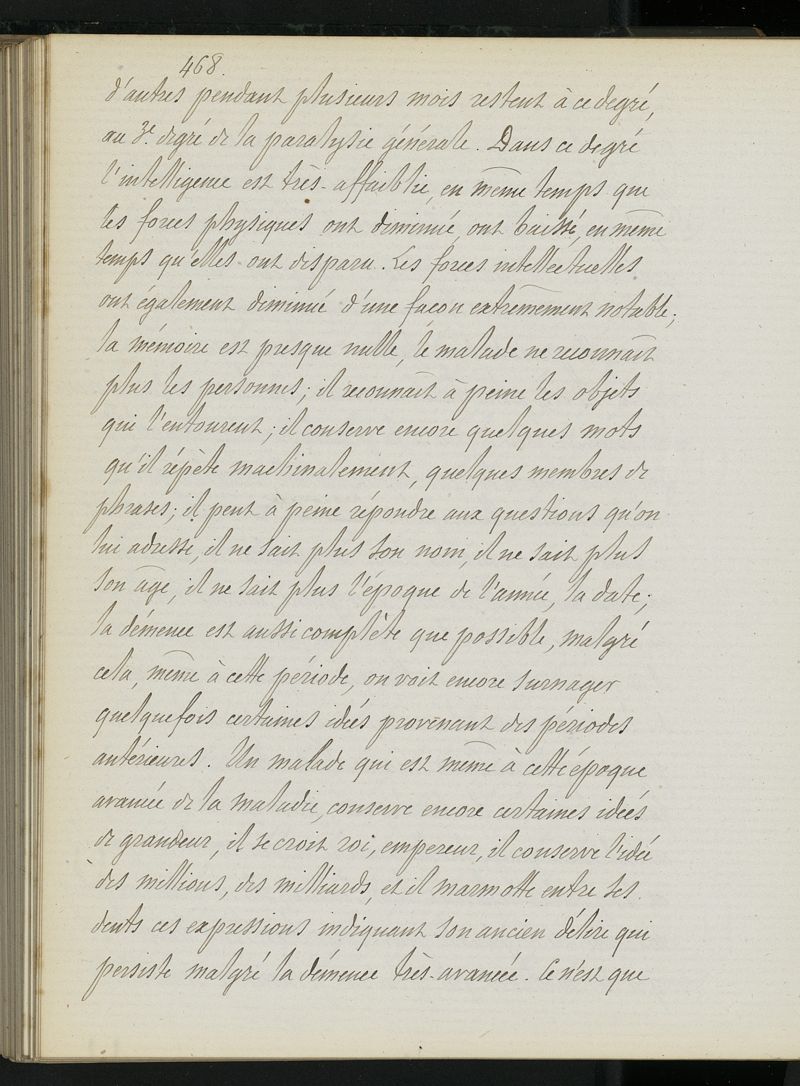 468.
d'autres pendant plusieurs mois restent à ce degré,
au 3e. degré de la paralysie générale. Dans ce degré
l'intelligence est très-affaiblie, en même temps que
les forces physiques ont diminué, ont baissé, en même
temps qu'elles ont disparu. Les forces intellectuelles
ont également diminué d'une façon extrêmement notable;
la mémoire est presque nulle, le malade ne reconnaît
plus les personnes; il reconnaît à peine les objets
qui l'entourent; il conserve encore quelques mots
qu'il répète machinalement, quelques membres de
phrases; il peut à peine répondre aux questions qu'on
lui adresse, il ne sait plus son nom, il ne sait plus
son âge, il ne sait plus l'époque de l'année, la date;
la démence est aussi complète que possible, malgré
cela, même à cette période, on voit encore surnager
quelquefois certaines idées provenant des périodes
antérieures. Un malade qui est même à cette époque
avancée de la maladie, conserve encore certaines idées
de grandeur, il se croit roi, empereur, il conserve l'idée
des millions, des milliards, et il marmotte entre ses
dents ces expressions indiquant son ancien délire qui
persiste malgré la démence très-avancée. Ce n'est que